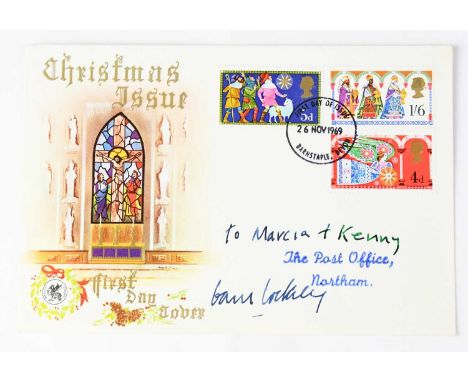 Christmas
Issue
5d
1/6
FIRST DAY OF ISSUE
26 NOV 1969
BARNSTAPLE, DEVON
4d
to Marcia + Kenny
The Post Office,
Northam.
First
Day
Cover